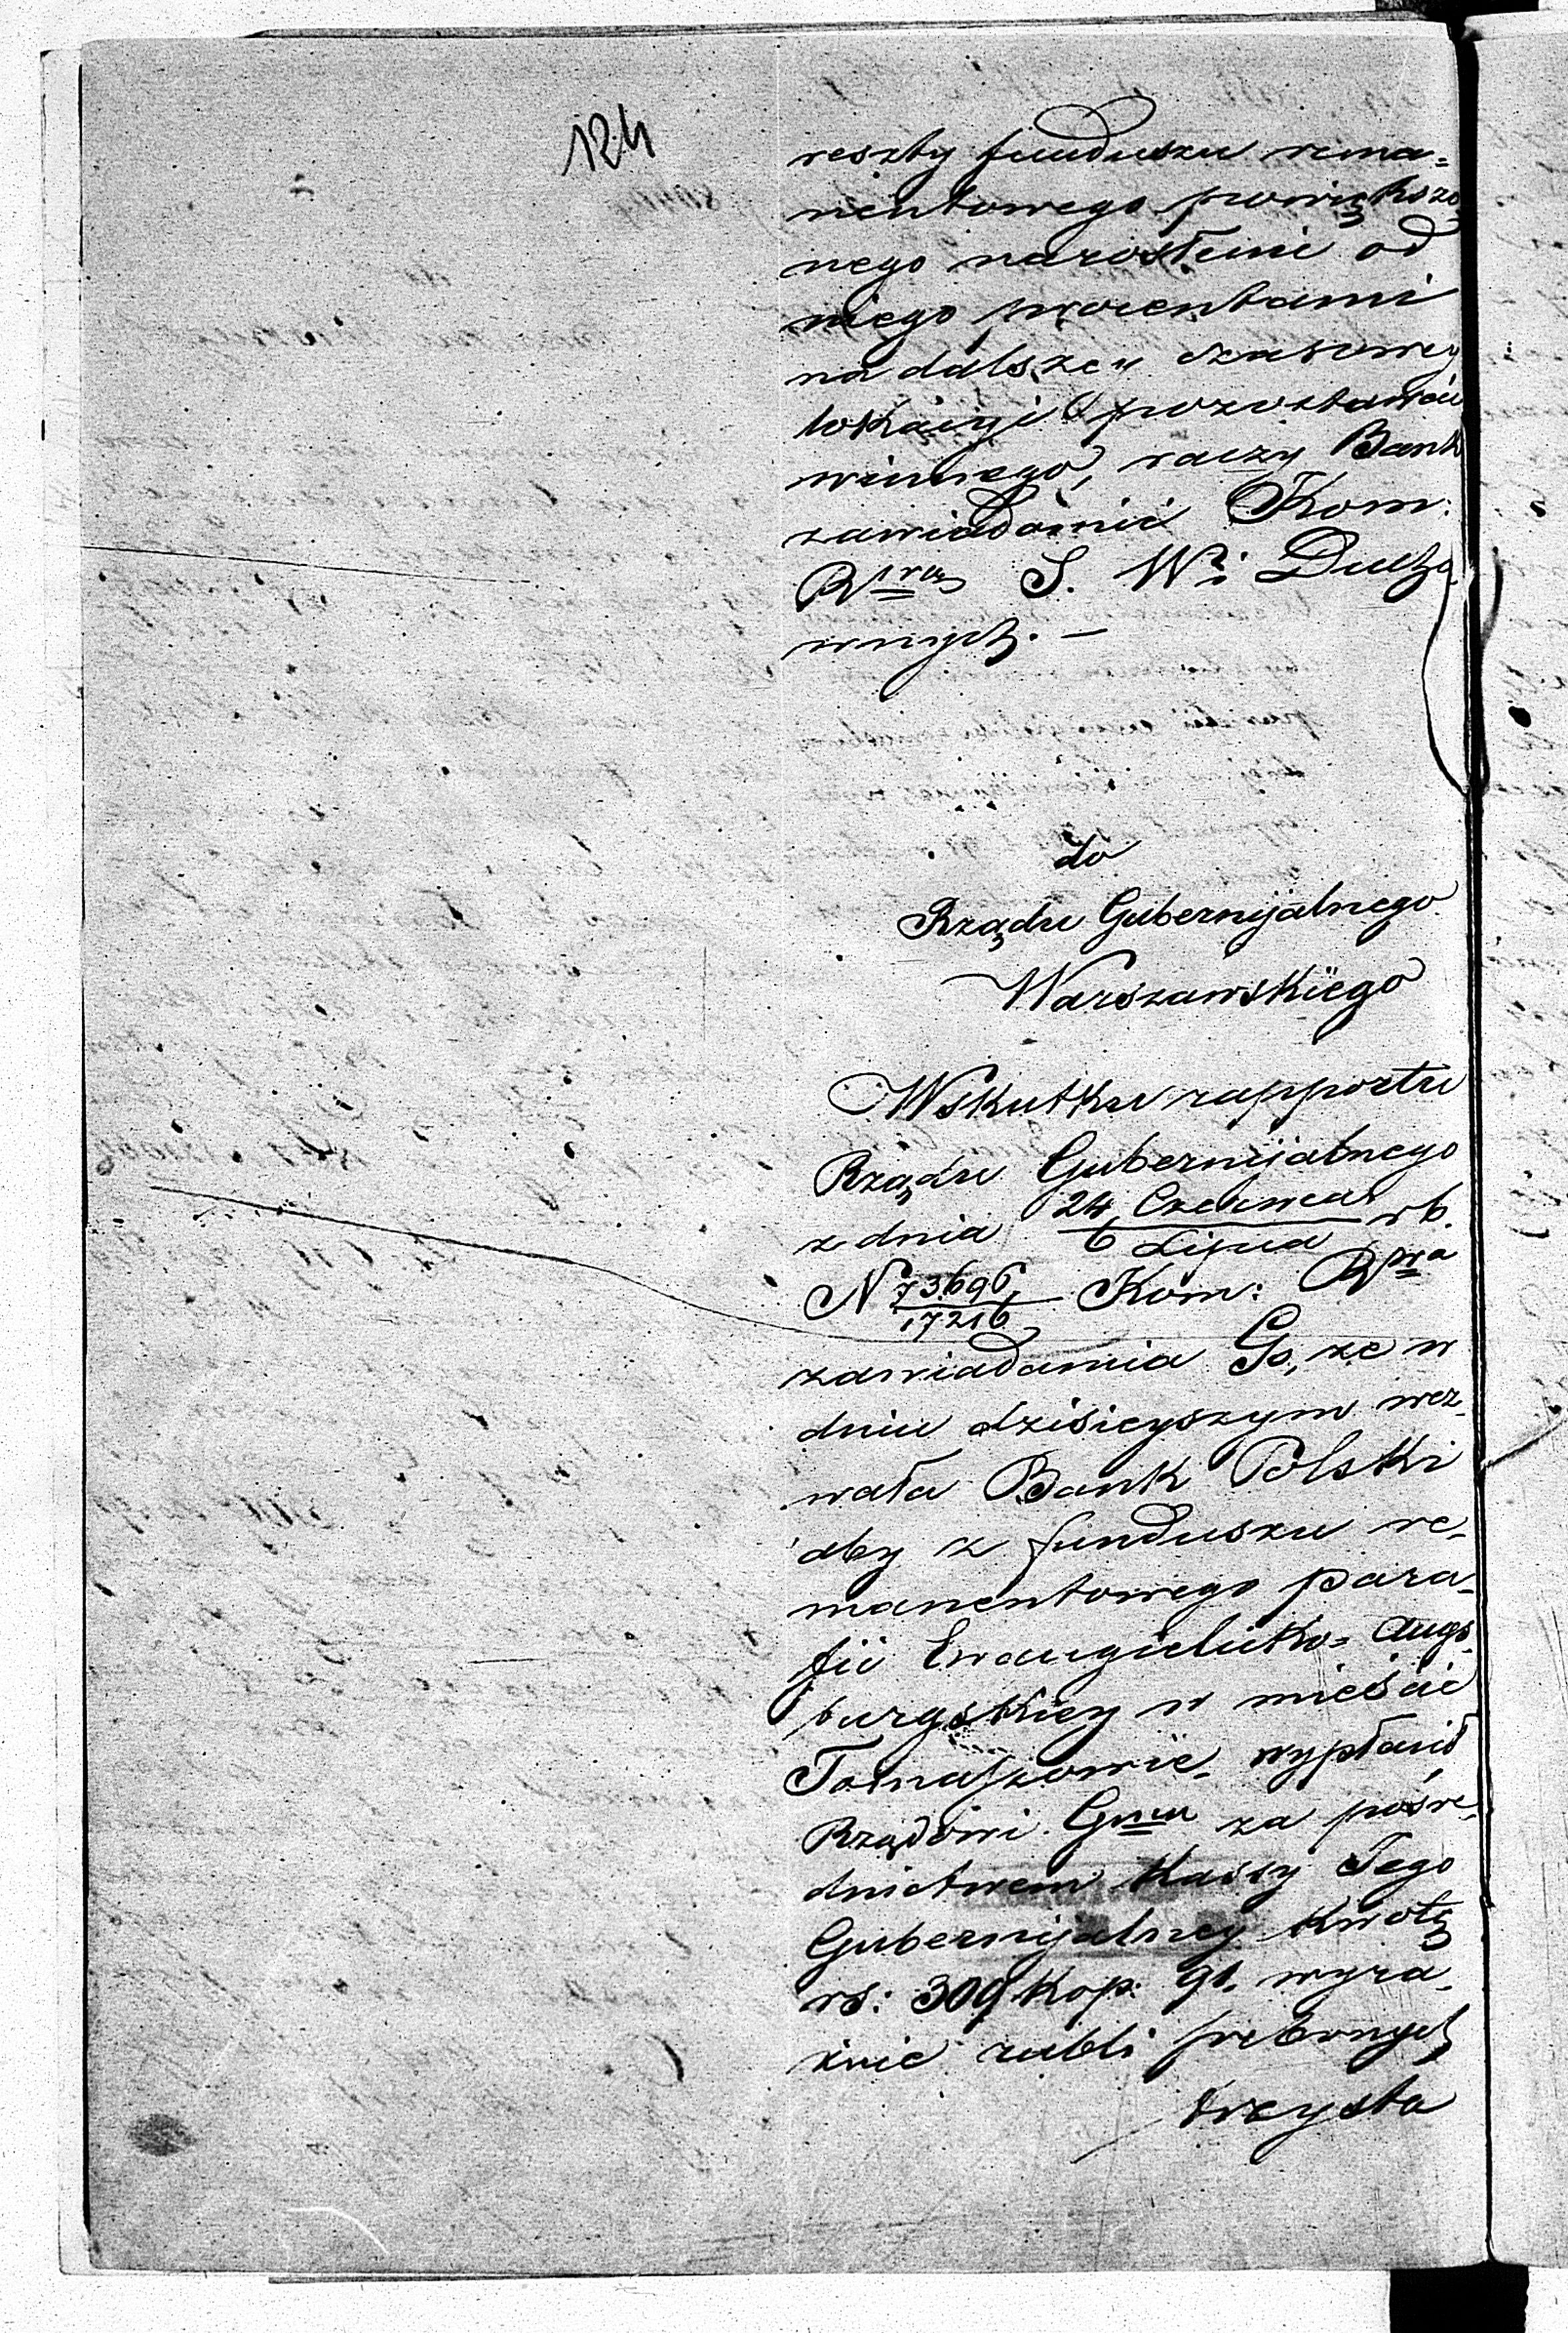 124
reszty funduszu rema=
nentowego powiększo
nego narosłemi od
niego procentami
na dalszey czasowey
lokacyi pozostawić
winnego, raczy Bank
zawiadomić Kom:
Rz S. W. i Ducho
wnych. —
do
Rządu Gubernijalnego
Warszawskiego
Wskutku rapportu
Rządu Gubernijalnego
z dnia 24 Czerwca / 6 Lipca rb.
N 73696 / 17216 Kom: Rz
zawiadamia Go, że w
dniu dzisieyszym wez-
wała Bank Polski
aby z funduszu re-
manentowego para-
fii Ewangielicko= Augs-
burgskiey w mieście
Tomaszowie, wypłacił
Rządowi Gnemu za pośre-
dnictwem Kassy Jego
Gubernijalney kwotę
rs: 309 kop: 91. wyra-
źnie rubli srebrnych
trzysta